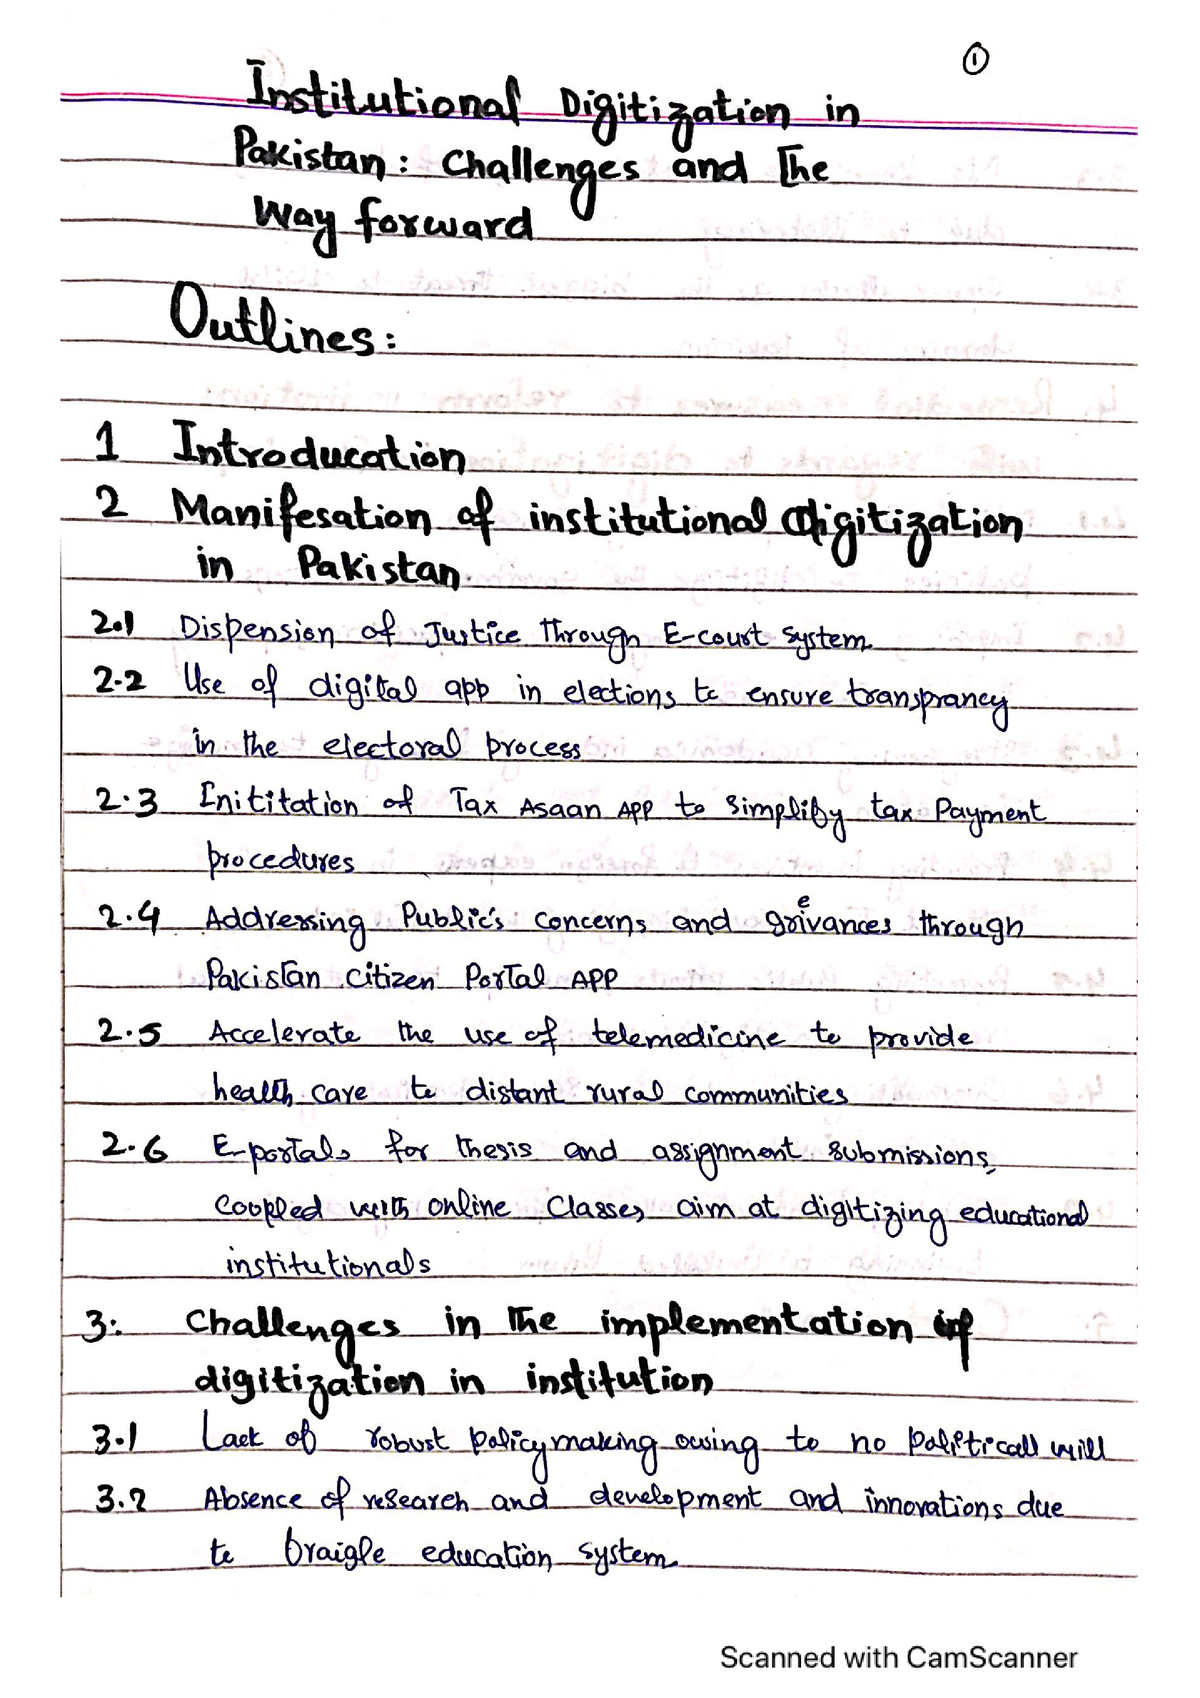 1
Institutional Digitization in
Pakistan: Challenges and The
Way forward
Outlines:
1 Introducation
2 Manifesation of institutional digitization
in Pakistan
2.1 Dispension of Justice Through E-court System
2.2 Use of digital app in elections to ensure transprancy
in the electoral process
2.3 Inititation of Tax Asaan APP to Simplify tax Payment
procedures
2.4 Addressing Public's concerns and grievances through
Pakistan Citizen Portal APP
2.5 Accelerate the use of telemedicine to provide
health care to distant rural communities
2.6 E-portals for thesis and assignment submissions,
Coupled with online Classes aim at digitizing educational
institutionals
3: Challenges in The implementation of
digitization in institution
3.1 Lack of robust policymaking owing to no Politicall will
3.2 Absence of research and development and innovations due
to braigle education system
Scanned with CamScanner